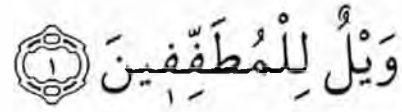 وَيْلٌ لِلْمُطَفِّفِينَ ١